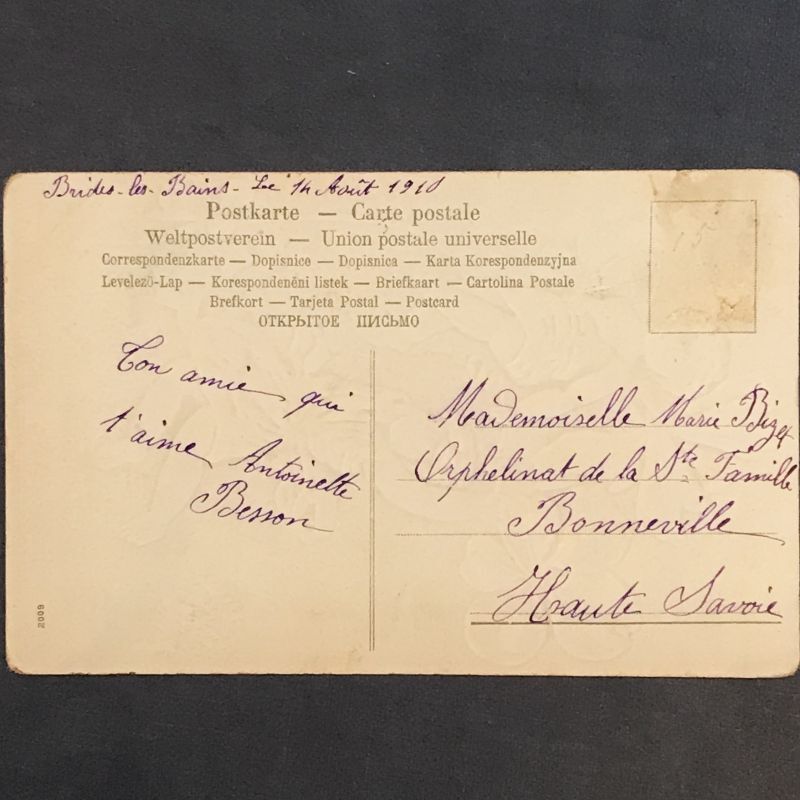 Brides-les-Bains- Le 14 Août 1910
Postkarte — Carte postale
Weltpostverein — Union postale universelle
Correspondenzkarte — Dopisnice — Dopisnica — Karta Korespondenzyjna
Levelező-Lap — Korespondenční listek — Briefkaart — Cartolina Postale
Brefkort — Tarjeta Postal — Postcard
ОТКРЫТОЕ ПИСЬМО
15
Ton amie qui
t'aime Antoinette
Besson
Mademoiselle Marie Bizet
Orphelinat de la Ste Famille
Bonneville
Haute Savoie
2009